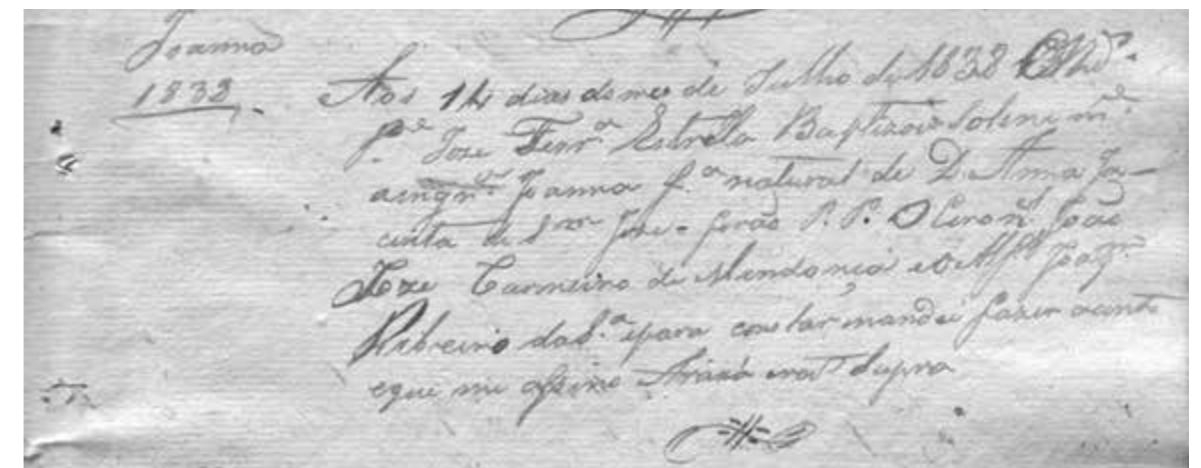 Joanna
1838
Aos 14 dias do mes de Julho de 1838 O Rdo.
Pe. Joze Ferra. Estrella Baptizou Solenemte.
a ingnte. Joanna fa. natural de D. Anna Ja-
cinta de S. Joze = forão P. P. O Coronel João
Joze Carneiro de Mendonça e o Alfs. Joaqm.
Ribeiro da Sa. e para constar mandei fazer o acento
e que me assino Araxá era Supra